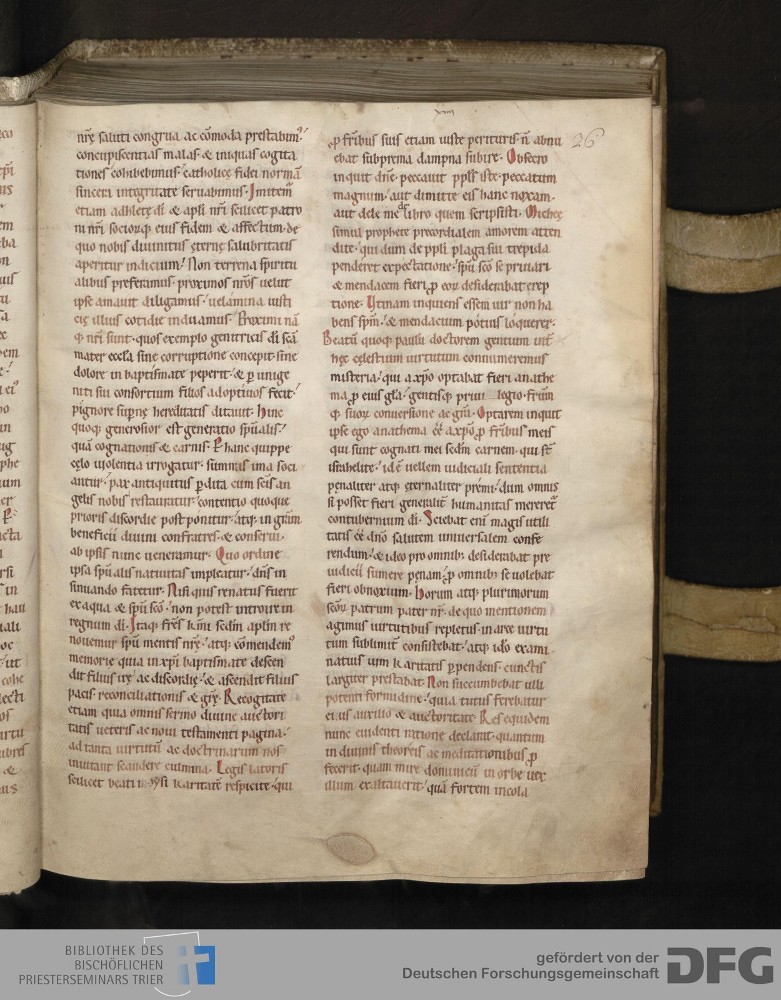 xiii
26
nrę saluti congrua ac cōmoda prestabim᷒
concupiscentias malas & iniquas cogita
tiones cohibebimus catholicę fidei normā
sincera integritate seruabimus. Imitem᷒
etiam adhletę di & apli nri scilicet patro
ni nri socior̃q; eius fidem & affectum. de
quo nobis diuinitus ęternę salubritatis
aperitur indicium. Non terrena spiritu
alibus preferamus. proximos nros uelut
ipse amauit diligamus. uelamina iusti
cię illius cotidie induamus. Proximi nā
q; nri sunt. quos exemplo genitricis di scā
mater eccla sine corruptione concepit sine
dolore in baptismate peperit. & p unige
niti sui consortium filios adoptiuos fecit.
pignore supnę hereditatis ditauit. hinc
quoq; generosior est generatio spualis.
quā cognationis & carnis. P hanc quippe
cęlo uiolentia irrogatur. summis ima soci
antur. pax antiquitus pdita cum scis an
gelis nobis restauratur. contentio quoque
prioris discordie postponitur. atq; in grām
beneficii diuini confratres. & conserui.
ab ipsis nunc ueneramur. Quo ordine
ipsa spualis natiuitas impleatur. dns in
sinuando fatetur. Nisi quis renatus fuerit
ex aqua & spu sco. non potest introire in
regnum di. Itaq; frēs kmi sedm aplm re
nouemur spu mentis nrę. atq; cōmendem᷒
memorie quia in xpi baptismate descen
dit filius irę ac discordię. & ascendit filius
pacis reconciliationis & grę. Recogitate
etiam quia omnis sermo diuine auctori
tatis ueteris ac noui testamenti pagina.
ad tanta uirtutū ac doctrinarum nos
inuitant scandere culmina. Legis latoris
scilicet beati moysi karitatē respicite. qui
p fribus suis etiam iuste perituris n abnu
ebat suprema dampna subire. Obsecro
inquit dne peccauit ppls iste peccatum
magnum. aut dimitte eis hanc noxam.
aut dele me de libro quem scripsisti. Michee
simul prophete precordialem amorem atten
dite. qui dum de ppli plaga sui trepida
penderet expectatione. spu sco se priuari
& mendacem fieri p eor̃ desiderabat erep
tione. Utinam inquiens essem uir non ha
bens spm. & mendacium potius loquerer.
Beatū quoq; paulū doctorem gentium int̃
hęc cęlestium uirtutum connumeremus
misteria. qui a xpo optabat fieri anathe
ma p eius gla. gentisq; priuilegio. frūm
q; suor̃ conuersione ac grā. Optarem inquit
ipse ego anathema ēē a xpo p fribus meis
qui sunt cognati mei sedm carnem. qui st̄
israhelitę. id ē uellem iudiciali sententia
penaliter atq; ęternaliter premi. dum omnis
si posset fieri generalit̃ humanitas mereret᷒
contubernium di. Sciebat eni magis utili
tatis ēē dno salutem uniuersalem confe
rendum. & ideo pro omnib; desiderabat pre
iudicii sumere penam. p omnib; se uolebat
fieri obnoxium. horum atq; plurimorum
scor̃ patrum pater nr. de quo mentionem
agimus uirtutibus repletus. in arce uirtu
tum sublimit̃ consistebat. atq; ideo exami
natius uim karitatis ppendens. cunctis
largiter prestabat. Non succumbebat ulli
potenti formidine. quia tutus ferebatur
ei᷒us auxilio & auctoritate. Res equidem
nunc euidenti ratione declarat. quantum
in diuinis theoreis ac meditationibus p
fecerit. quam mire dominicū in orbe uex
illum exaltauerit. quā fortem incola
BIBLIOTHEK DES
BISCHÖFLICHEN
PRIESTERSEMINARS TRIER
gefördert von der
Deutschen Forschungsgemeinschaft
DFG